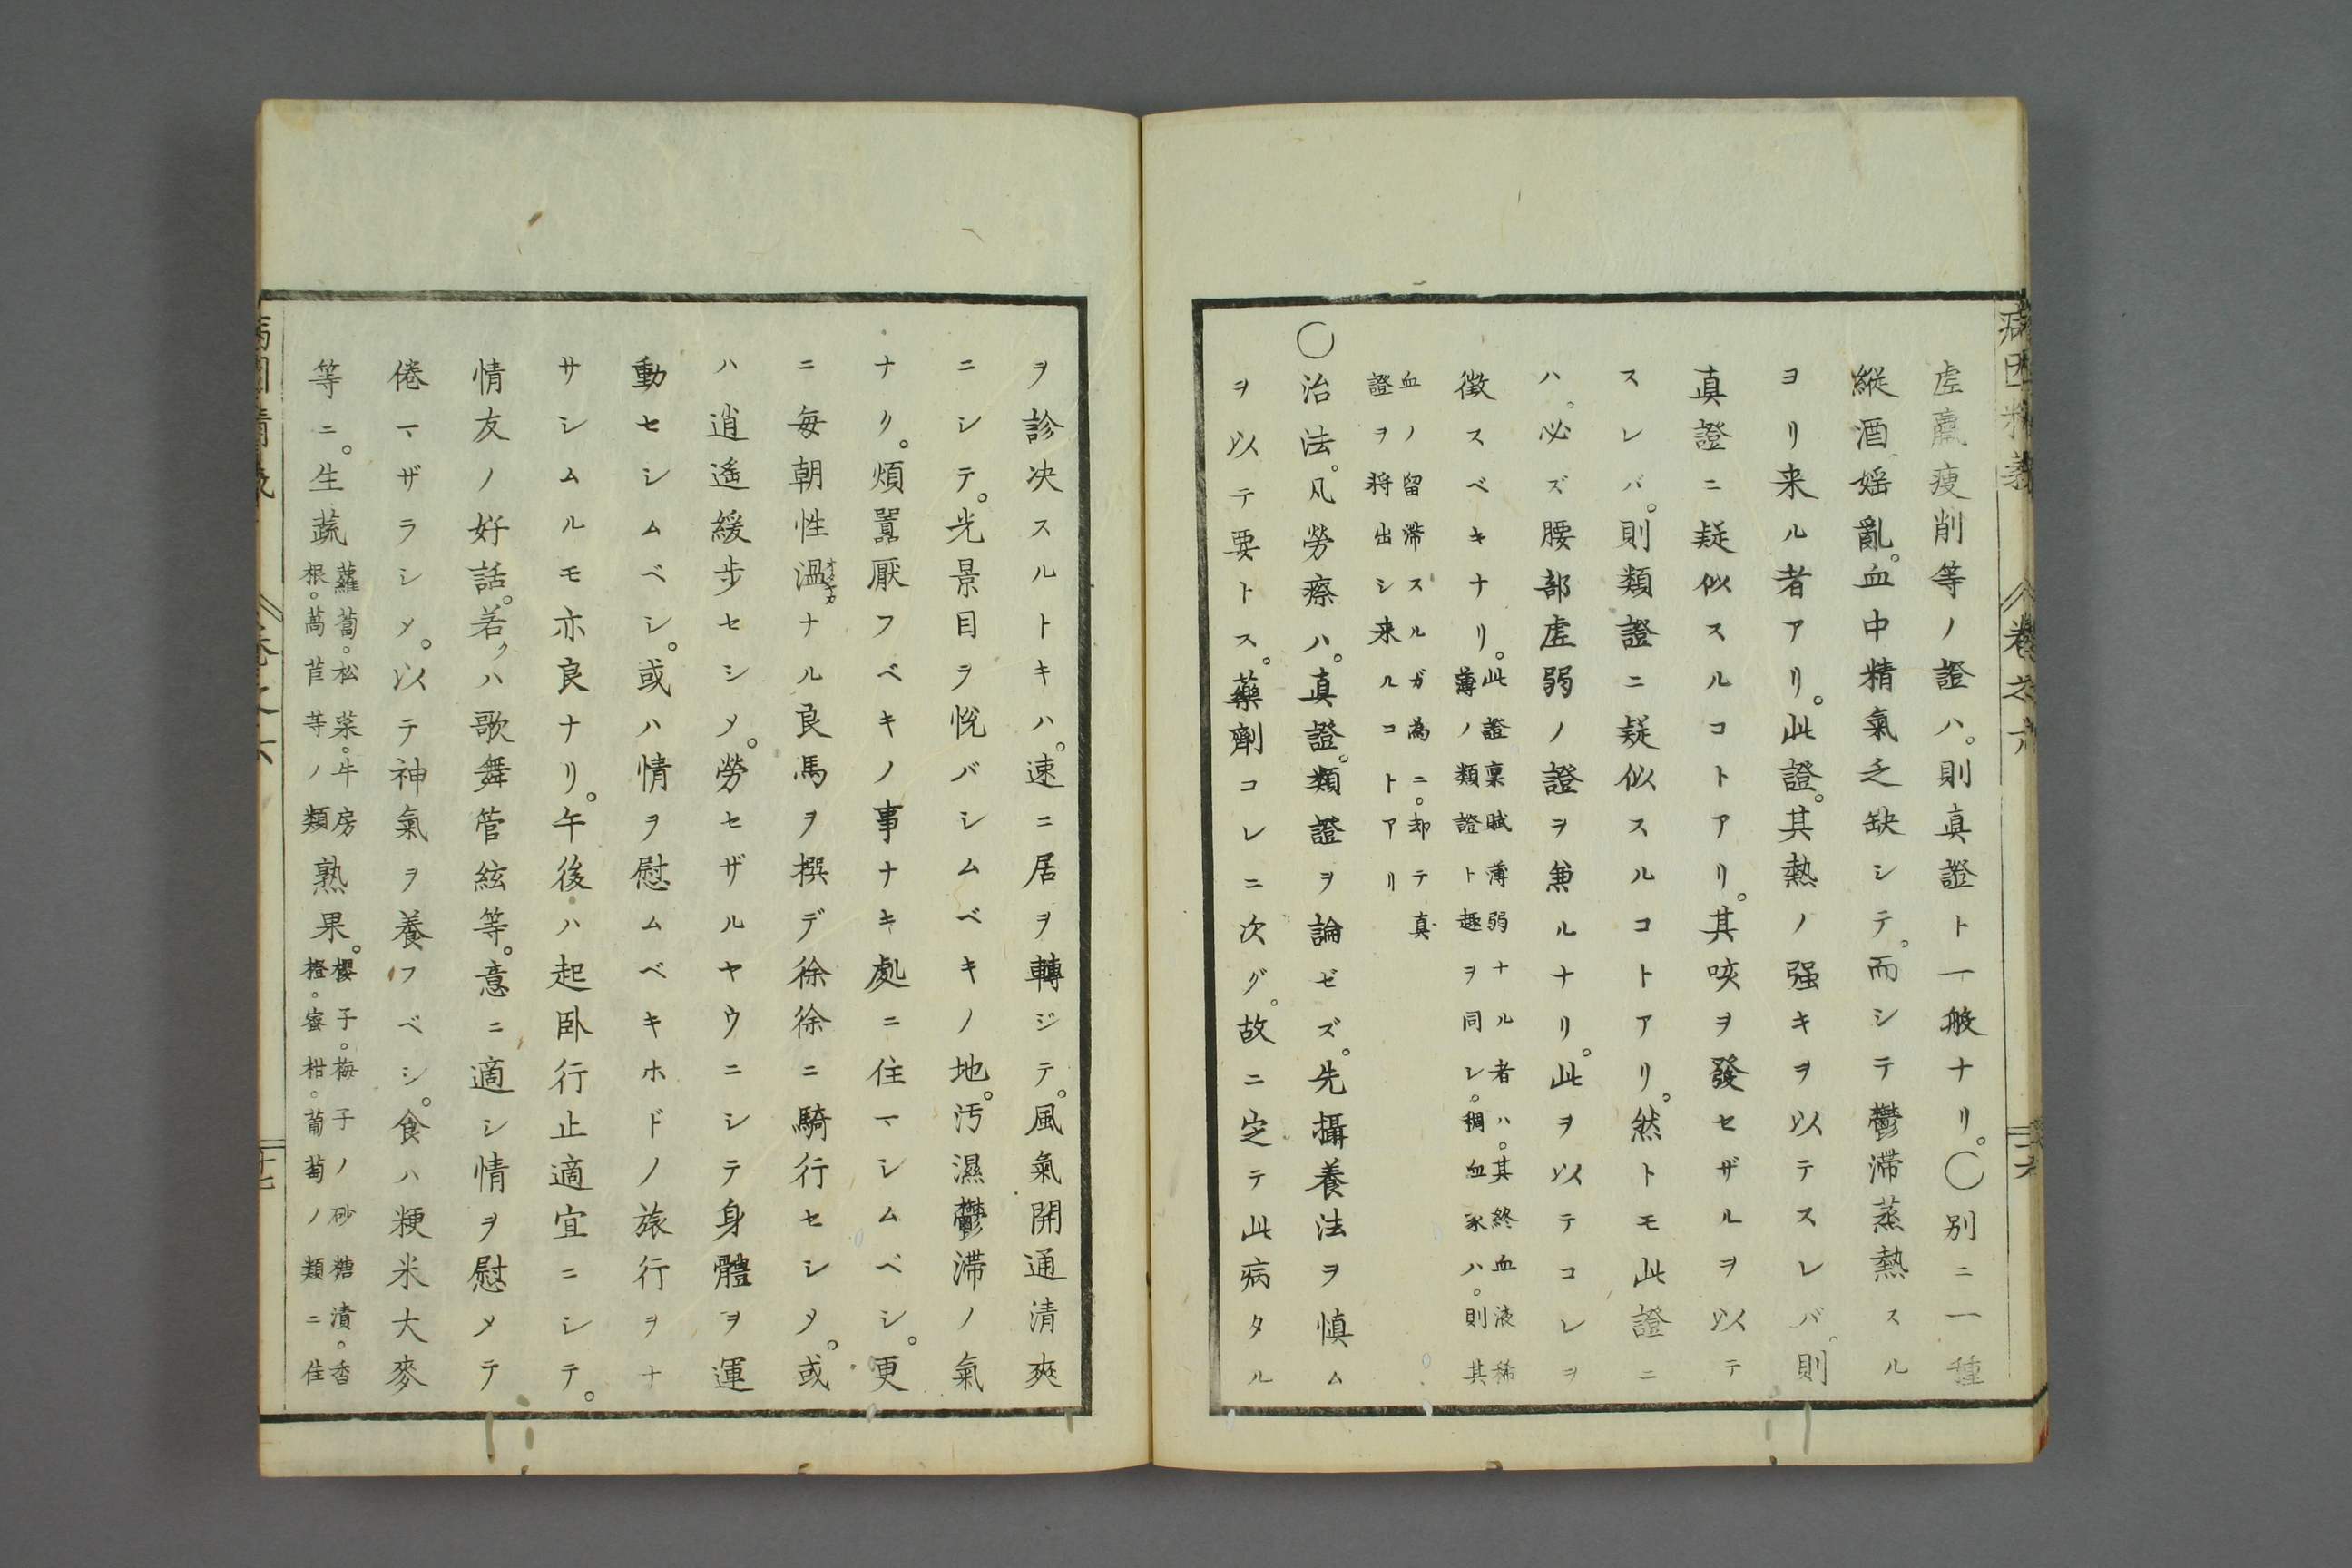 病因精義
卷之六
二十六
虛羸瘦削等ノ證ハ。則真證ト一般ナリ。○別ニ一種
縱酒婬亂。血中精氣乏缺シテ。而シテ鬱滞蒸熱スル
ヨリ来ル者アリ。此證。其熱ノ强キヲ以テスレバ。則
真證ニ疑似スルコトアリ。其咳ヲ發セザルヲ以テ
スレバ。則類證ニ疑似スルコトアリ。然トモ此證ニ
ハ。必ズ腰部虛弱ノ證ヲ兼ルナリ。此ヲ以テコレヲ
徵スベキナリ。此證稟賦薄弱ナル者ハ。其終血液稀
薄ノ類證ト趣ヲ同レ。稠血家ハ。則其
血ノ留滞スルガ為ニ。却テ真
證ヲ将出シ来ルコトアリ
○治法。凡勞瘵ハ。真證。類證ヲ論ゼズ。先攝養法ヲ慎ム
ヲ以テ要トス。藥劑コレニ次グ。故ニ定テ此病タル
ヲ診决スルトキハ。速ニ居ヲ轉ジテ。風氣開通清爽
ニシテ。光景目ヲ悅バシムベキノ地。汚濕鬱滞ノ氣
ナク。煩囂厭フベキノ事ナキ處ニ住マシムベシ。更
ニ每朝性溫ナル良馬ヲ撰デ徐徐ニ騎行セシメ。或
ハ逍遙緩步セシメ。勞セザルヤウニシテ身體ヲ運
動セシムベシ。或ハ情ヲ慰ムベキホドノ旅行ヲナ
サシムルモ亦良ナリ。午後ハ起卧行止適宜ニシテ。
情友ノ好話。若クハ歌舞管絃等。意ニ適シ情ヲ慰メテ
倦マザラシメ。以テ神氣ヲ養フベシ。食ハ粳米大麥
等ニ。生蔬蘿蔔。松菜。牛房
根。萵苣等ノ類熟果。櫻子。梅子ノ砂糖漬。香
橙。蜜柑。葡萄ノ類ニ佳
卷之六